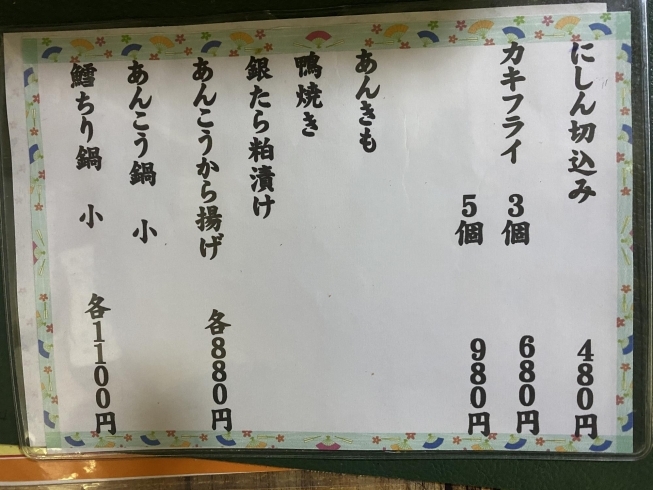 にしん切込み 480円
カキフライ 3個 680円
5個 980円
あんきも
鴨焼き
銀たら粕漬け
あんこうから揚げ 各880円
あんこう鍋 小
鱈ちり鍋 小 各1100円